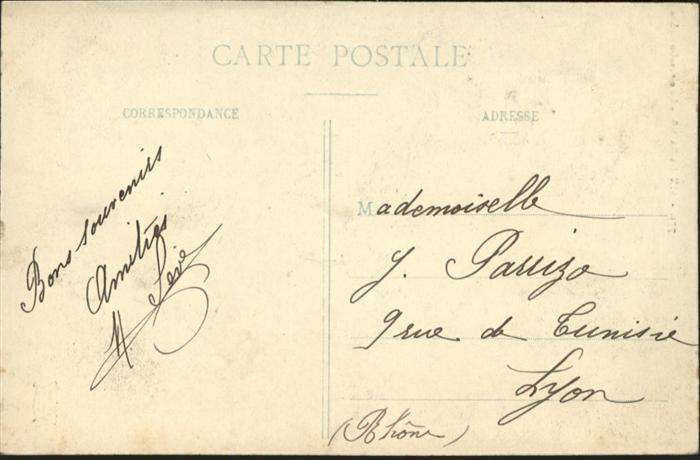 CARTE POSTALE
CORRESPONDANCE
Bons souvenirs
Amitiés
H. Sève
ADRESSE
Mademoiselle
J. Parizo
9 rue de Tunisie
Lyon
(Rhône)